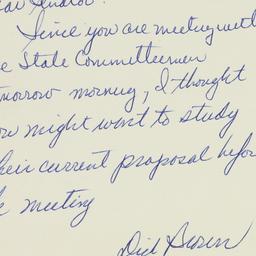 ear Senator
Since you are meeting with
e State Committeemen
omorrow morning, I thought
ou might want to study
heir current proposal befo
e meeting
Dick